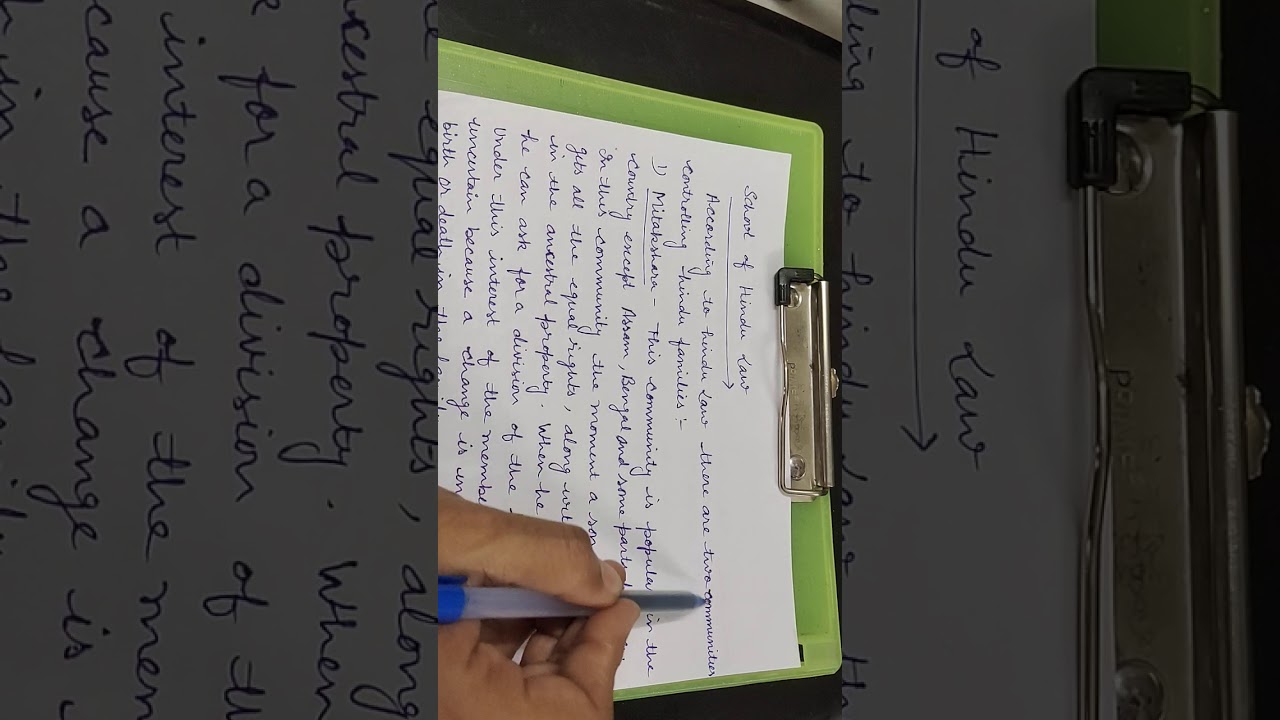 School of Hindu Law
According to hindu Law there are two communities
controlling hindu families:-
1) Mitakshara - This community is popular in the
country except Assam, Bengal and some parts
In this community the moment a son
gets all the equal rights, along
in the ancestral property. When he
he can ask for a division of the
Under this interest of the
uncertain because a change is
birth or death in the